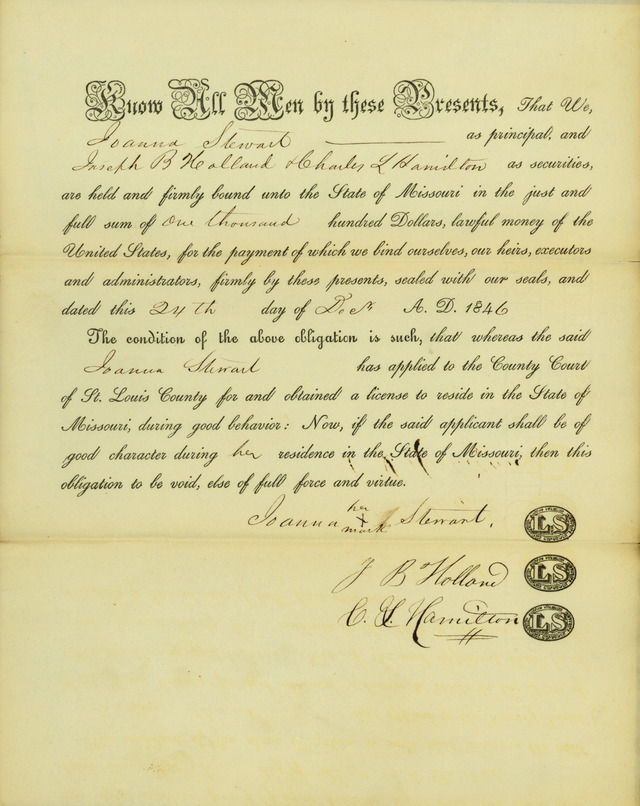 Know All Men by these Presents, That We,
Joanna Stewart as principal, and
Joseph B Holland & Charles L Hamilton as securities,
are held and firmly bound unto the State of Missouri in the just and
full sum of One thousand hundred Dollars, lawful money of the
United States, for the payment of which we bind ourselves, our heirs, executors
and administrators, firmly by these presents, sealed with our seals, and
dated this 24th day of Decr A. D. 1846
The condition of the above obligation is such, that whereas the said
Joanna Stewart has applied to the County Court
of St. Louis County for and obtained a license to reside in the State of
Missouri, during good behavior: Now, if the said applicant shall be of
good character during her residence in the State of Missouri, then this
obligation to be void, else of full force and virtue.
her
Joanna X Stewart. LS
mark
J B Holland LS
C. L. Hamilton LS